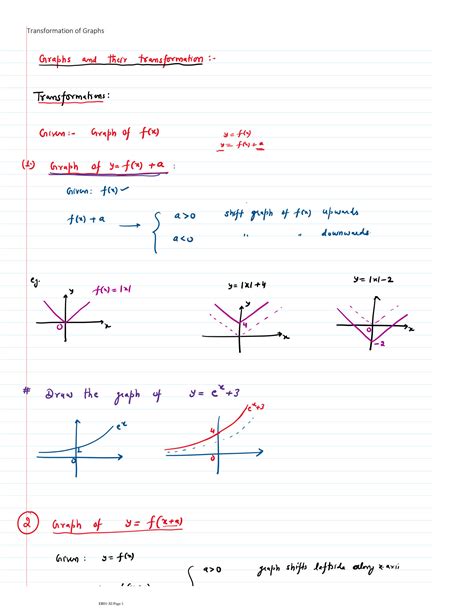 Transformation of Graphs
Graphs and their transformation :-
Transformations :
Given :- Graph of f(x)
y = f(x)
y = f(x) + a
(1) Graph of y = f(x) + a :
Given : f(x) ✓
f(x) + a → { a>0 shift graph of f(x) upwards
a<0 " " downwards
eg:
y f(x) = |x|
0 x
y = |x| + 4
y
4
x
y = |x| - 2
0 x
-2
# Draw the graph of y = e^x + 3
e^x
1
0
e^x+3
4
0
② Graph of y = f(x+a)
Given : y = f(x)
{ a>0 graph shifts leftside along x-axis